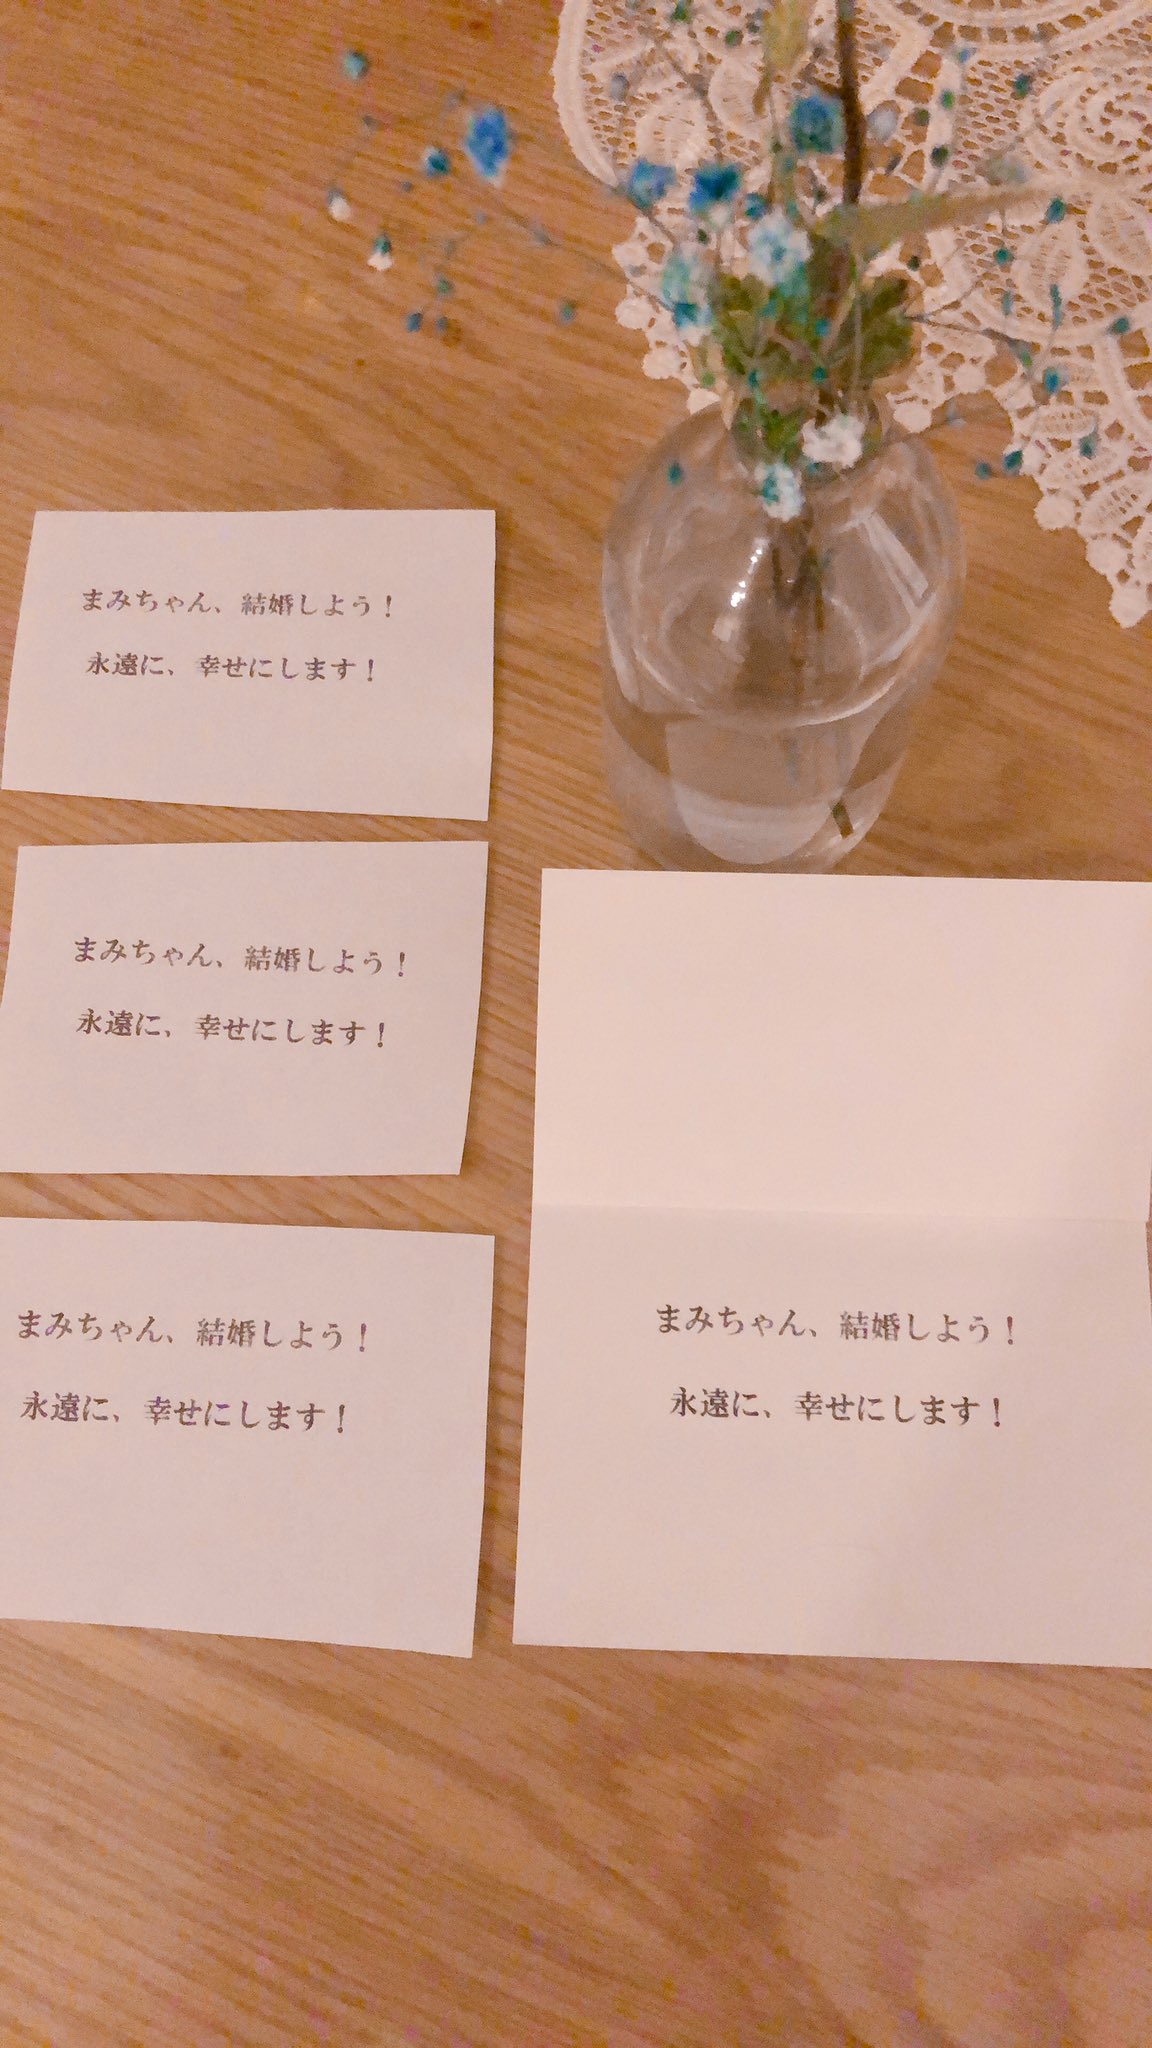 まみちゃん、結婚しよう！
永遠に、幸せにします！
まみちゃん、結婚しよう！
永遠に、幸せにします！
まみちゃん、結婚しよう！
永遠に、幸せにします！
まみちゃん、結婚しよう！
永遠に、幸せにします！